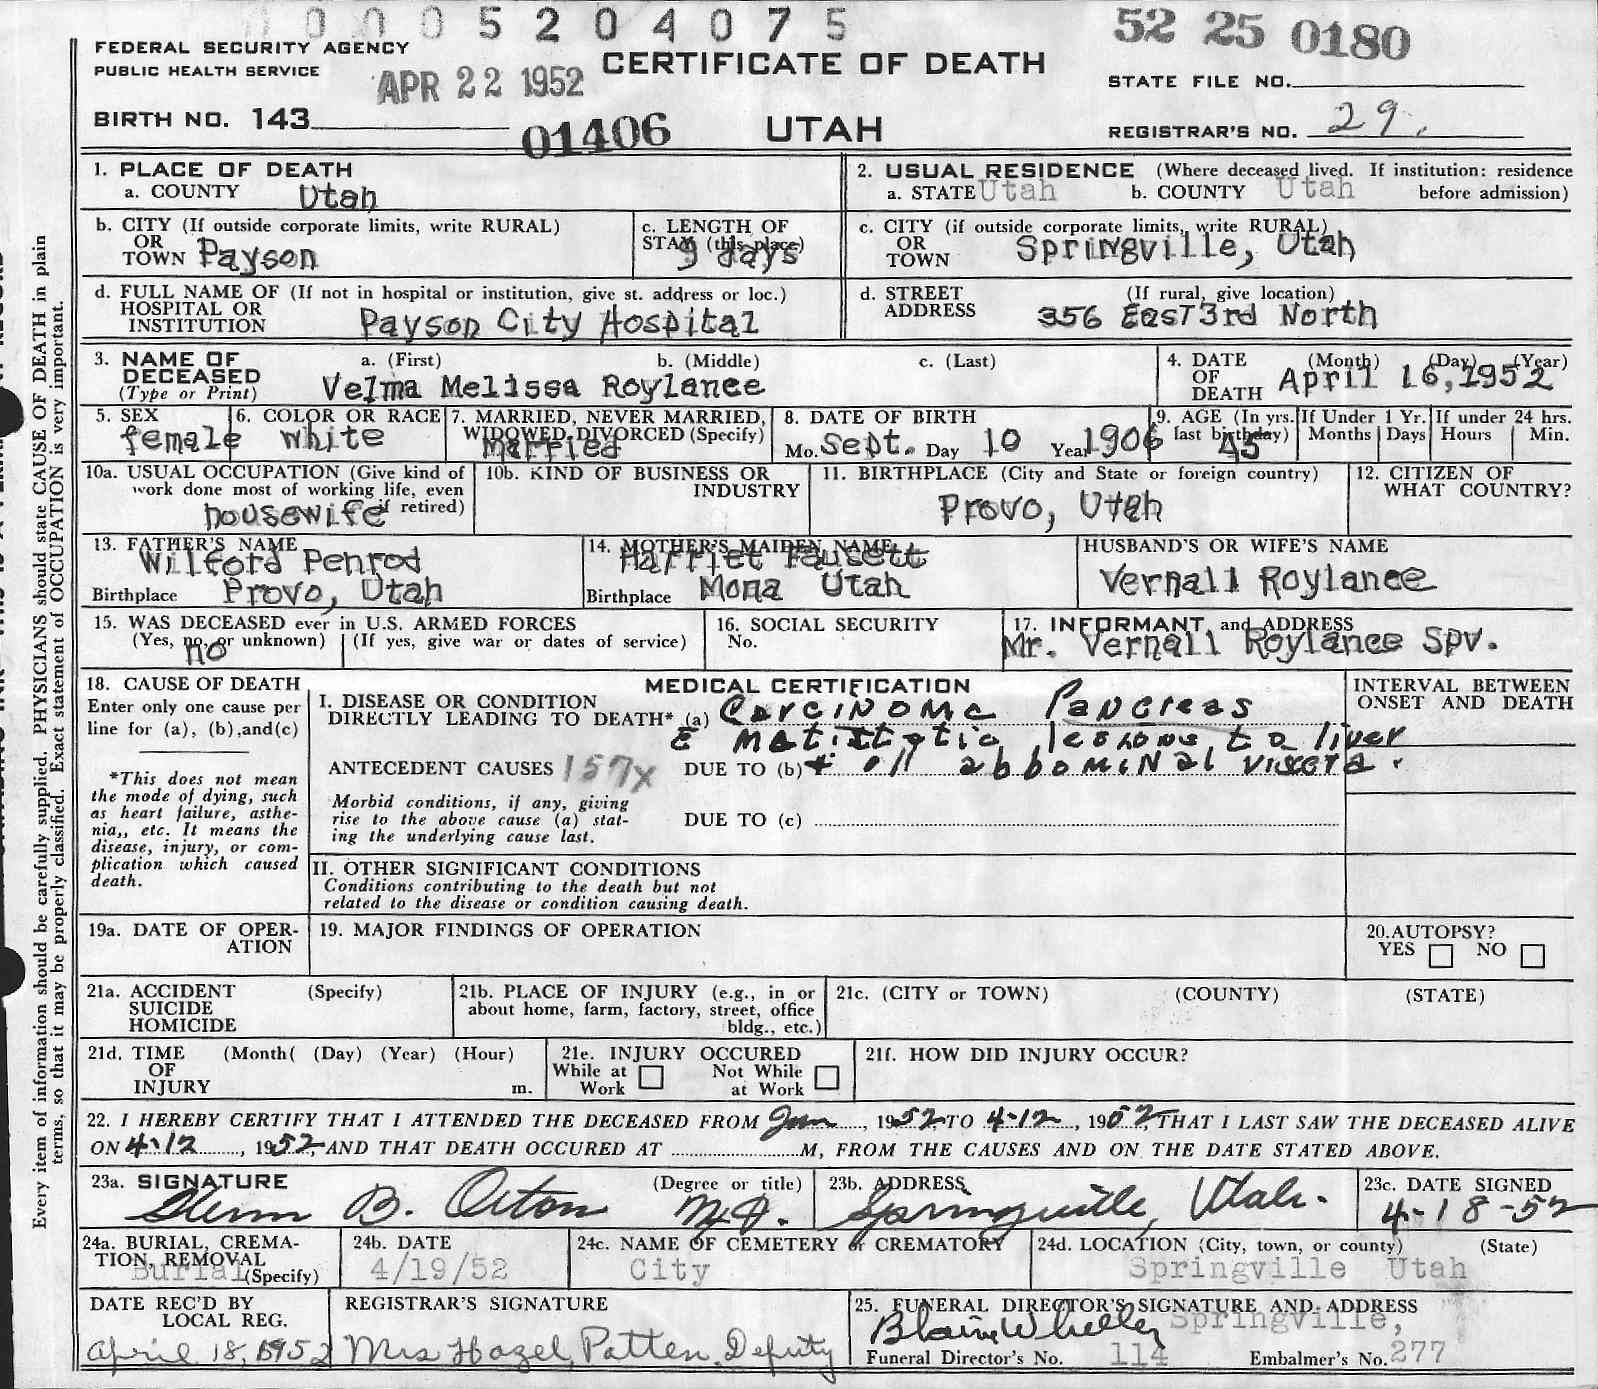 0 0 0 5 2 0 4 0 7 5
52 25 0180
FEDERAL SECURITY AGENCY
PUBLIC HEALTH SERVICE
APR 22 1952
CERTIFICATE OF DEATH
STATE FILE NO.
BIRTH NO. 143
01406
UTAH
REGISTRAR'S NO. 29.
1. PLACE OF DEATH
a. COUNTY Utah
2. USUAL RESIDENCE (Where deceased lived. If institution: residence
a. STATE Utah b. COUNTY Utah before admission)
b. CITY (If outside corporate limits, write RURAL)
OR
TOWN Payson
c. LENGTH OF
STAY (this place)
9 days
c. CITY (if outside corporate limits, write RURAL)
OR
TOWN Springville, Utah
d. FULL NAME OF (If not in hospital or institution, give st. address or loc.)
HOSPITAL OR
INSTITUTION Payson City Hospital
d. STREET (If rural, give location)
ADDRESS 356 East 3rd North
3. NAME OF a. (First) b. (Middle) c. (Last)
DECEASED
(Type or Print) Velma Melissa Roylance
4. DATE (Month) (Day) (Year)
OF
DEATH April 16, 1952
5. SEX
female
6. COLOR OR RACE
white
7. MARRIED, NEVER MARRIED,
WIDOWED, DIVORCED (Specify)
Married
8. DATE OF BIRTH
Mo. Sept. Day 10 Year 1906
9. AGE (In yrs.
last birthday)
45
If Under 1 Yr.
Months Days
If under 24 hrs.
Hours Min.
10a. USUAL OCCUPATION (Give kind of
work done most of working life, even
if retired)
housewife
10b. KIND OF BUSINESS OR
INDUSTRY
11. BIRTHPLACE (City and State or foreign country)
Provo, Utah
12. CITIZEN OF
WHAT COUNTRY?
13. FATHER'S NAME
Wilford Penrod
Birthplace Provo, Utah
14. MOTHER'S MAIDEN NAME
Harriet Fausett
Birthplace Mona Utah
HUSBAND'S OR WIFE'S NAME
Vernall Roylance
15. WAS DECEASED ever in U.S. ARMED FORCES
(Yes, no, or unknown) (If yes, give war or dates of service)
no
16. SOCIAL SECURITY
No.
17. INFORMANT and ADDRESS
Mr. Vernall Roylance Spv.
18. CAUSE OF DEATH
Enter only one cause per
line for (a), (b), and (c)
*This does not mean
the mode of dying, such
as heart failure, asthe-
nia,, etc. It means the
disease, injury, or com-
plication which caused
death.
MEDICAL CERTIFICATION
I. DISEASE OR CONDITION
DIRECTLY LEADING TO DEATH* (a) Carcinoma Pancreas
lesions to liver
ANTECEDENT CAUSES 157x DUE TO (b) + all abbominal viscera.
Morbid conditions, if any, giving
rise to the above cause (a) stat-
ing the underlying cause last.
DUE TO (c)
INTERVAL BETWEEN
ONSET AND DEATH
II. OTHER SIGNIFICANT CONDITIONS
Conditions contributing to the death but not
related to the disease or condition causing death.
19a. DATE OF OPER-
ATION
19. MAJOR FINDINGS OF OPERATION
20. AUTOPSY?
YES NO
21a. ACCIDENT (Specify)
SUICIDE
HOMICIDE
21b. PLACE OF INJURY (e.g., in or
about home, farm, factory, street, office
bldg., etc.)
21c. (CITY or TOWN) (COUNTY) (STATE)
21d. TIME (Month( (Day) (Year) (Hour)
OF
INJURY m.
21e. INJURY OCCURED
While at Not While
Work at Work
21f. HOW DID INJURY OCCUR?
22. I HEREBY CERTIFY THAT I ATTENDED THE DECEASED FROM Jan, 1952 TO 4-12, 1952 THAT I LAST SAW THE DECEASED ALIVE
ON 4-12, 1952, AND THAT DEATH OCCURED AT M, FROM THE CAUSES AND ON THE DATE STATED ABOVE.
23a. SIGNATURE (Degree or title)
Glenn B. Orton M.D.
23b. ADDRESS
Springville, Utah.
23c. DATE SIGNED
4-18-52
24a. BURIAL, CREMA-
TION, REMOVAL
Burial (Specify)
24b. DATE
4/19/52
24c. NAME OF CEMETERY or CREMATORY
City
24d. LOCATION (City, town, or county) (State)
Springville Utah
DATE REC'D BY
LOCAL REG.
April 18, 1952
REGISTRAR'S SIGNATURE
Mrs Hazel Patten, Deputy
25. FUNERAL DIRECTOR'S SIGNATURE AND ADDRESS
Blain W Springville,
Funeral Director's No. 114 Embalmer's No. 277
Every item of information should be carefully supplied. PHYSICIANS should state CAUSE OF DEATH in plain
terms, so that it may be properly classified. Exact statement of OCCUPATION is very important.